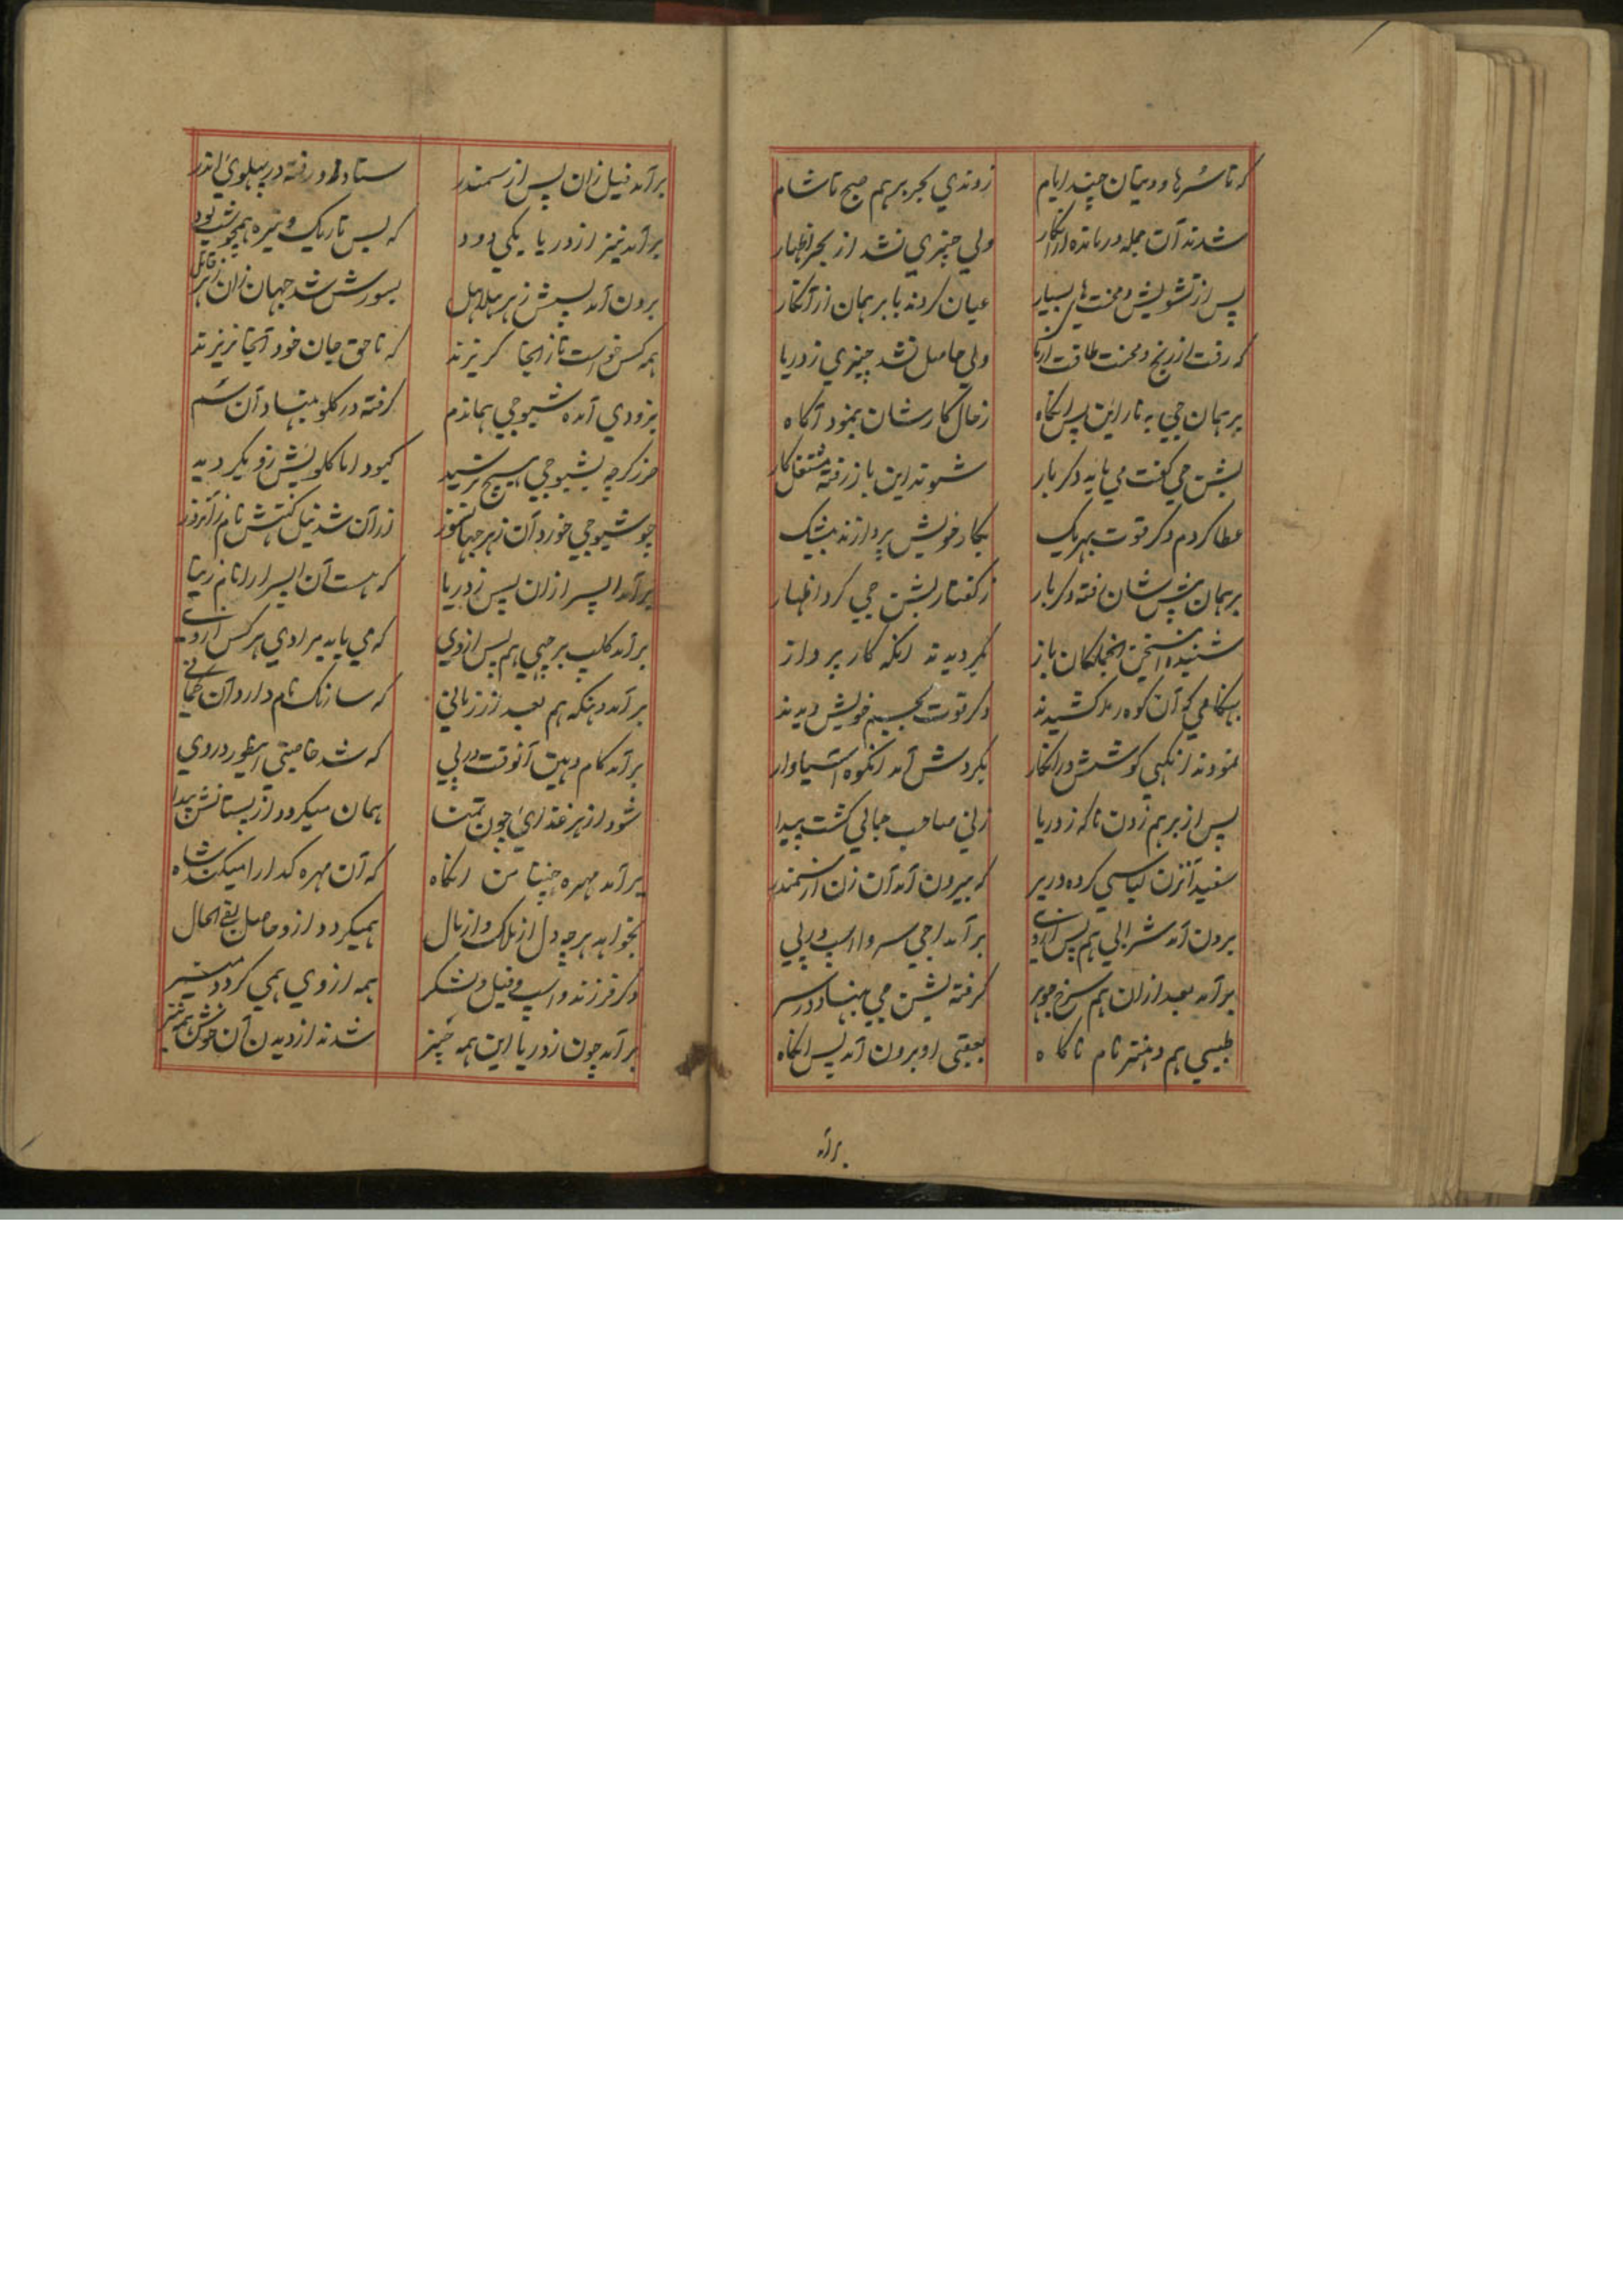 که تا سُرها و دیتان چند ایام زوندی بحر برهم صبح تا شام
شدند آن جمله درمانده ازانکار ولی چیزی نشد از بحر اظهار
پس از تشویش و محنت های بسیار عیان کردند با برهمان از آنکار
که رفت از رنج و محنت طاقت از ما ولی حاصل نشد چیزی ز دریا
برهمان جی به نارائن پس انگاه ز حال کارشان بنمود آگاه
بشن جی گفت می باید دکر بار شوند این باز رفته مشتغل کار
عطا کردم دکر قوت بهریک بکار خویش پردازند بیشک
برهمان پیش شان رفته دکر بار ز گفتار بشن جی کرد اظهار
شنیده این سخن انجملکان باز کردیدند انکه کار پرداز
بهنکامی که آن کوه را کشیدند دکر قوت بجسم خویش دیدند
نمودند از نکهی کوشش درانکار بکردش آمد انکوه آسیاوار
پس از برهم زدن ناکه ز دریا زنی صاحب جمالی کشت پیدا
سفید آنزن لباسی کرده در بر که بیرون آمد آن زن از سمندر
برون آمد شرابی هم پس از وی بر آمد اجی سروا اسپ در پی
برآمد بعد ازان هم سرخ جوهر کرفته بشن جی بنهاد در سر
طبیبی هم دهنتر نام ناکاه بعقبی او برون آمد پس انگاه
برآمد
برآمد فیل زان پس از سمندر ستاد و رفته در پهلوی اندر
برآمد نیز از دریا یکی دود که بس تاریک و تیره همچو شب بود
برون آمد پسش زهر هلاهل بسورش شد جهان زان زهر قاتل
همه کس خواست تا زانجا کریزند که ناحق جان خود آنجا نریزند
بزودی آمده شیوجی هماندم کرفته در کلو بنهاد آن سم
ضرر کرچه بشیوجی هیچ نرسید کبود اما کلویش زو بکردید
چو شیوجی خورد آن زهر جهانسوز ازان شد نیل کنتهش نام زانروز
برآمد اپسر ازان پس ز دریا که هست آن اپسرا را نام رنبا
برآمد کلپ برچهی هم پس از وی که می یابد مرادی هر کس از وی
برآمد دهنکه هم بعد از زمانی که سارنک نام دارد آن کمانی
برآمد کام دهین آنوقت در پی که شد خاصیتی اینطور در وی
شود از هر غذای چون تمنا همان میکردد از پستانش پیدا
برآمد مهره چنتا من انگاه که آن مهره کدا را میکند شاه
بخواهد هرچه دل از ملاک و از مال همیکردد ازو حاصل بفی الحال
دکر فرزند و اسپ و فیل و لشکر همه از وی همی کردد میسر
برآمد چون ز دریا این همه چیز شدند از دیدن آن خوش همه نیز